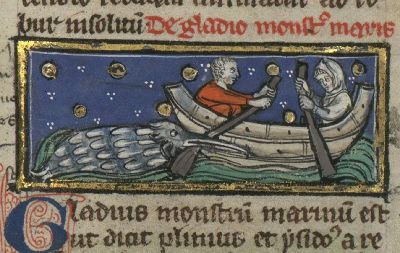 ad ro
bur insolitū De gladio monstᵒ maris
Gladius monstrū marinū est
ut dicit plinius et ysidoᵒ a re